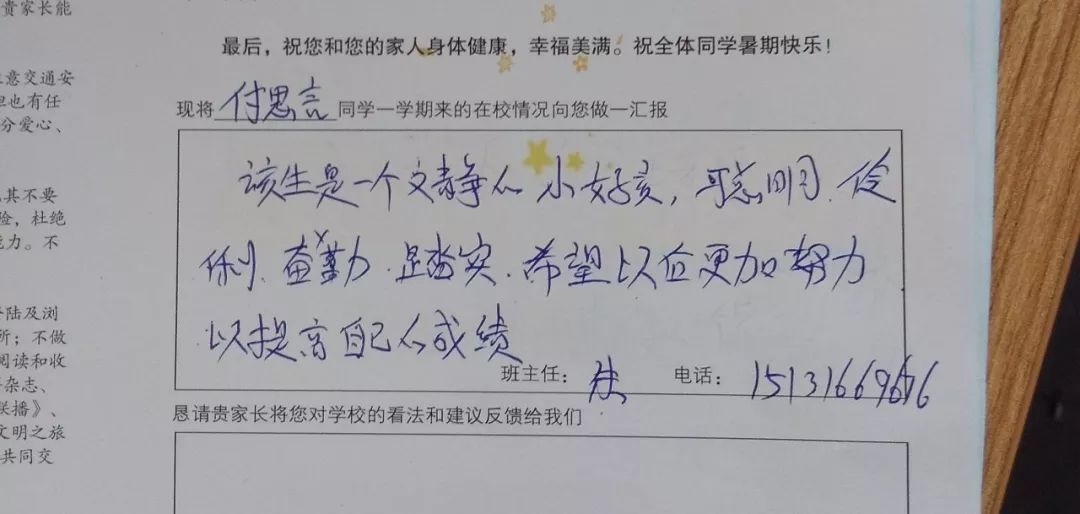 贵家长能
最后，祝您和您的家人身体健康，幸福美满。祝全体同学暑期快乐！
意交通安
也有任
分爱心、
现将 付思言 同学一学期来的在校情况向您做一汇报
该生是一个文静的小好孩，聪明.伶
俐.勤.踏实.希望以后更加努力
以提高自己的成绩
班主任： 电话：
其不要
险，杜绝
能力。不
陆及浏
所；不做
阅读和收
杂志、
联播》、
文明之旅
共同交
恳请贵家长将您对学校的看法和建议反馈给我们